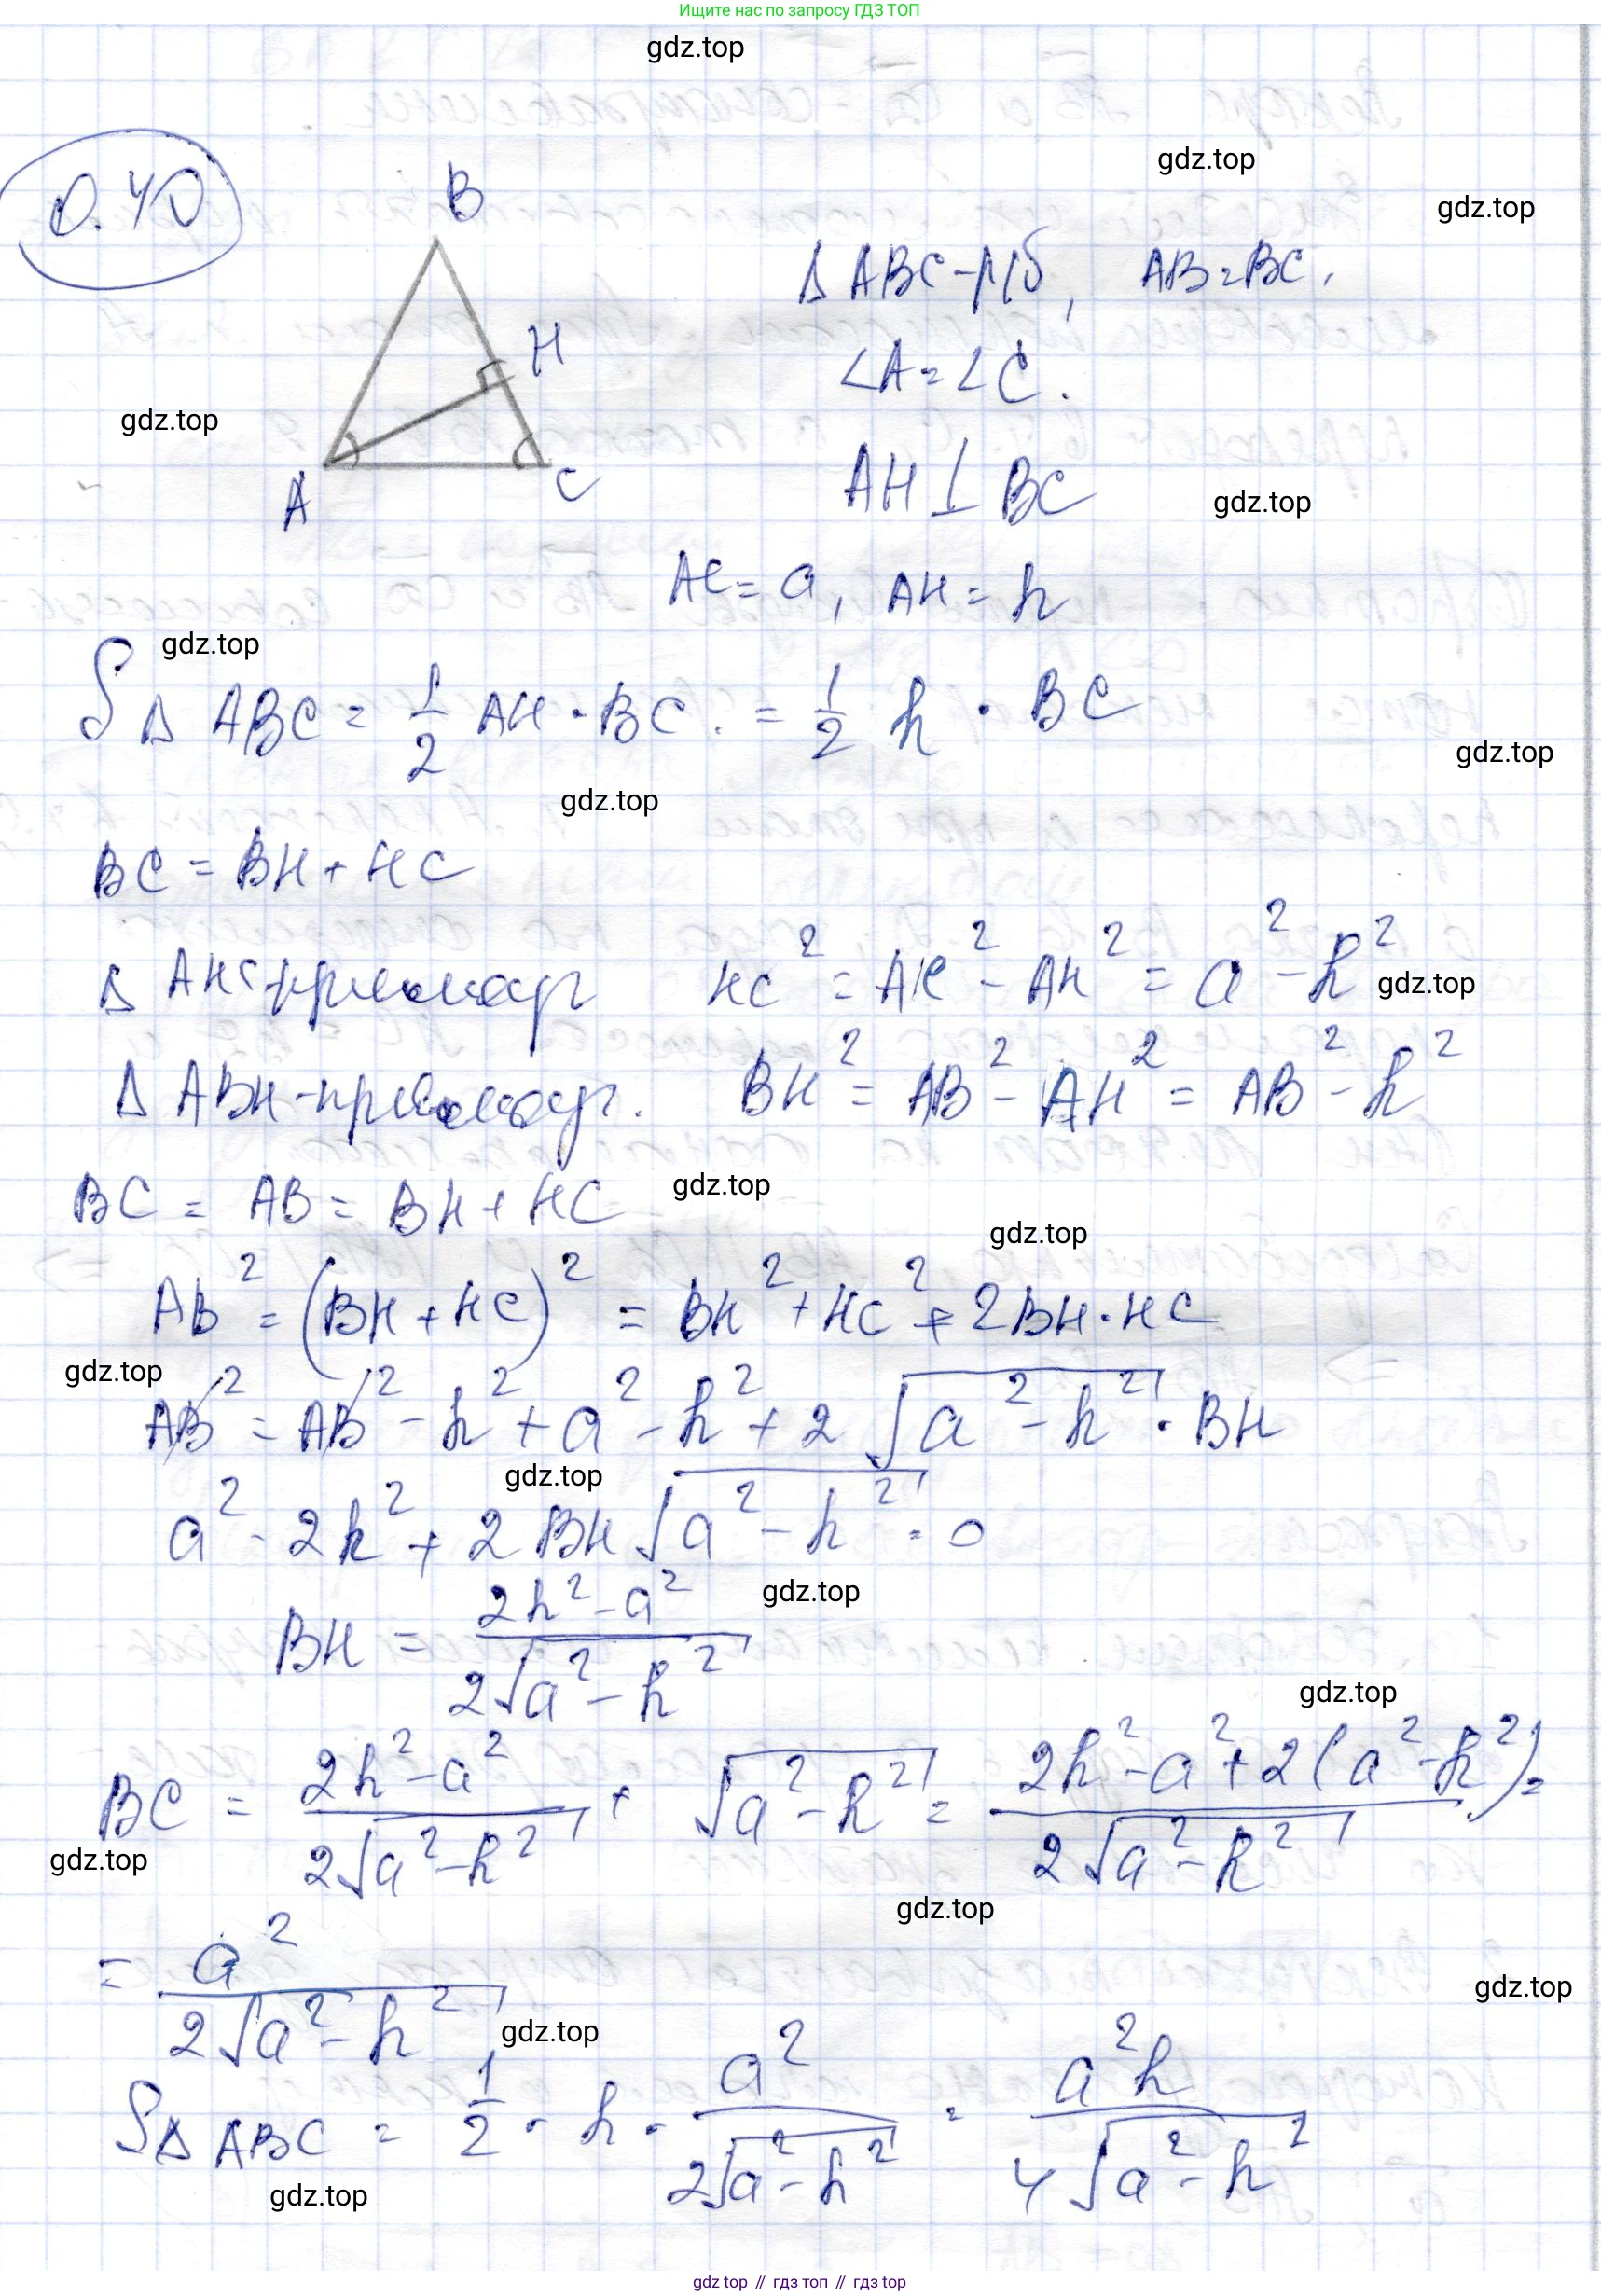 Ищите нас по запросу ГДЗ ТОП
gdz.top
0.40
B
gdz.top
gdz.top
Δ ABC - р/б, AB = BC,
H
∠A = ∠C.
gdz.top
A
C
AH ⊥ BC
gdz.top
AC = a, AH = h
gdz.top
S Δ ABC = 1/2 AH · BC. = 1/2 h · BC
gdz.top
gdz.top
BC = BH + HC
Δ AHC - прямоуг HC² = AC² - AH² = a² - h²
gdz.top
Δ ABH - прямоуг. BH² = AB² - AH² = AB² - h²
BC = AB = BH + HC
gdz.top
gdz.top
AB² = (BH + HC)² = BH² + HC² + 2BH · HC
gdz.top
AB² = AB² - h² + a² - h² + 2 √(a² - h²) · BH
gdz.top
a² - 2h² + 2 BH √(a² - h²) = 0
gdz.top
BH = (2h² - a²) / (2√(a² - h²))
gdz.top
BC = (2h² - a²) / (2√(a² - h²)) + √(a² - h²) = (2h² - a² + 2(a² - h²)) / (2√(a² - h²)) =
gdz.top
gdz.top
= a² / (2√(a² - h²))
gdz.top
gdz.top
S Δ ABC = 1/2 · h · a² / (2√(a² - h²)) = a²h / (4√(a² - h²))
gdz.top
gdz top // гдз топ // gdz top